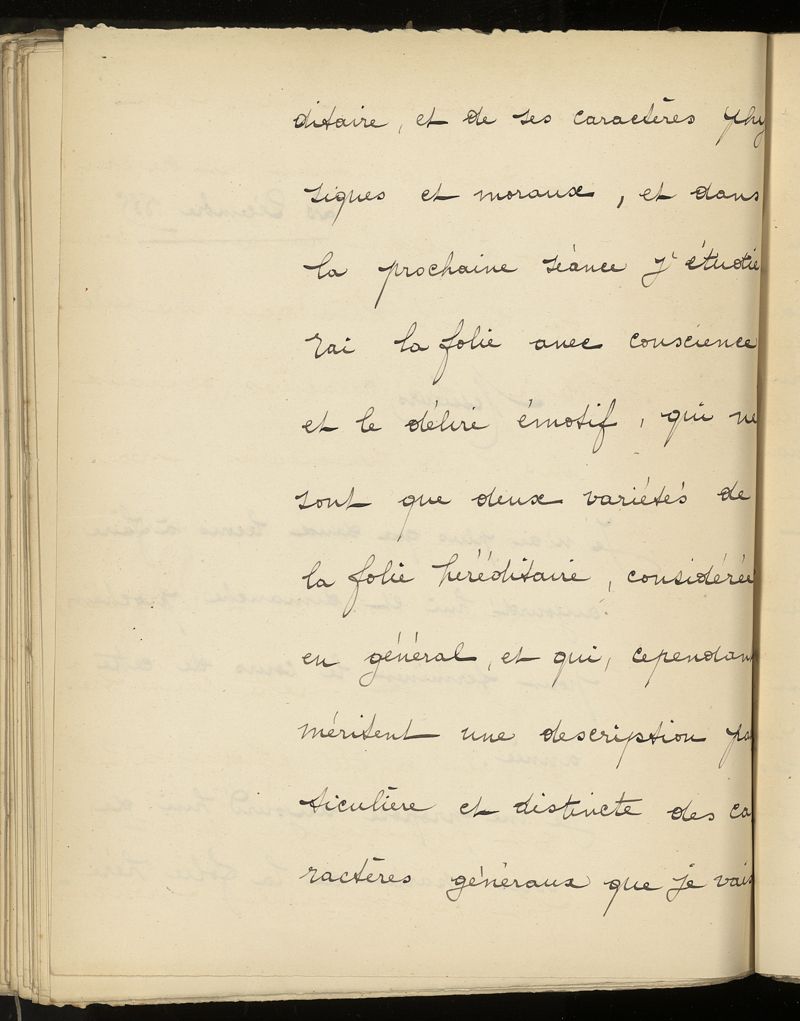 ditaire, et de ses caractères phy
siques et moraux, et dans
la prochaine séance j'étudie
rai la folie avec conscience
et le délire émotif, qui ne
sont que deux variétés de
la folie héréditaire, considérée
en général, et qui, cependant
méritent une description pa
ticulière et distincte des ca
ractères généraux que je vais